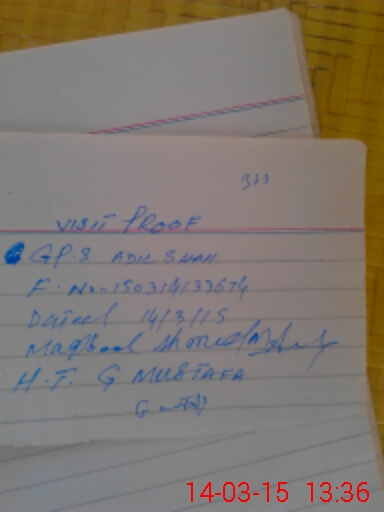 VISIT PROOF
G.P.S ADIL SHAH
F. No-150314133674
Dated 14/3/15
Maqbool
H.T. G MUSTAFA
14-03-15 13:36